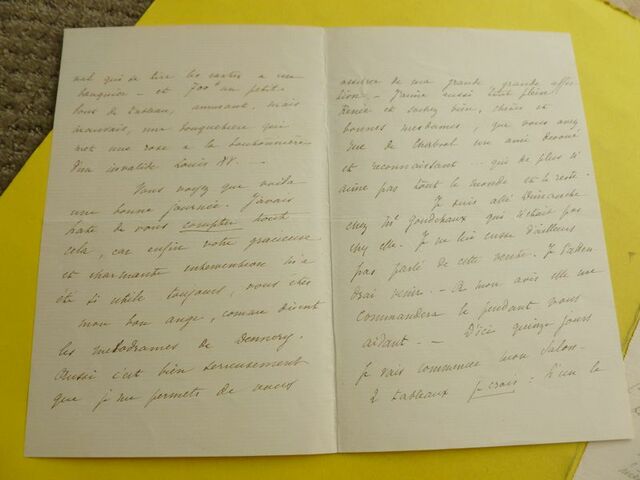 nal qui se tire les cartes a un
banquier — et 700 f un petit
bout de tableau, amusant, mais
mauvais, une bouquetiere qui
met une rose a la boutonnière
d'un invalide Louis XV. —
Vous voyez que voila
une bonne journée. J'avais
hate de vous compter tout
cela, car enfin votre gracieuse
et charmante intervention m'a
été si utile toujours, vous etes
mon bon ange, comme disent
les melodrames de Dennery.
Aussi c'est bien serieusement
que je me permets de vous
assurer de ma grande grande affec
tion. — J'aime aussi tout plein
René et sachez bien, chères et
bonnes mesdames, que vous avez
rue de Chabrol un ami devoué
et reconnaissant ... qui de plus n'
aime pas tout le monde et le reste.
Je suis allé Dimanche
chez Mr Goudchaux qui n'était pas
chez elle. Je ne lui eusse d'ailleurs
pas parlé de cette vente. Je l'atten
drai venir. — A mon avis elle me
commandera le pendant vous
aidant. — D'ici quinze jours
Je vais commencer mon Salon —
2 tableaux je crois. L'un le